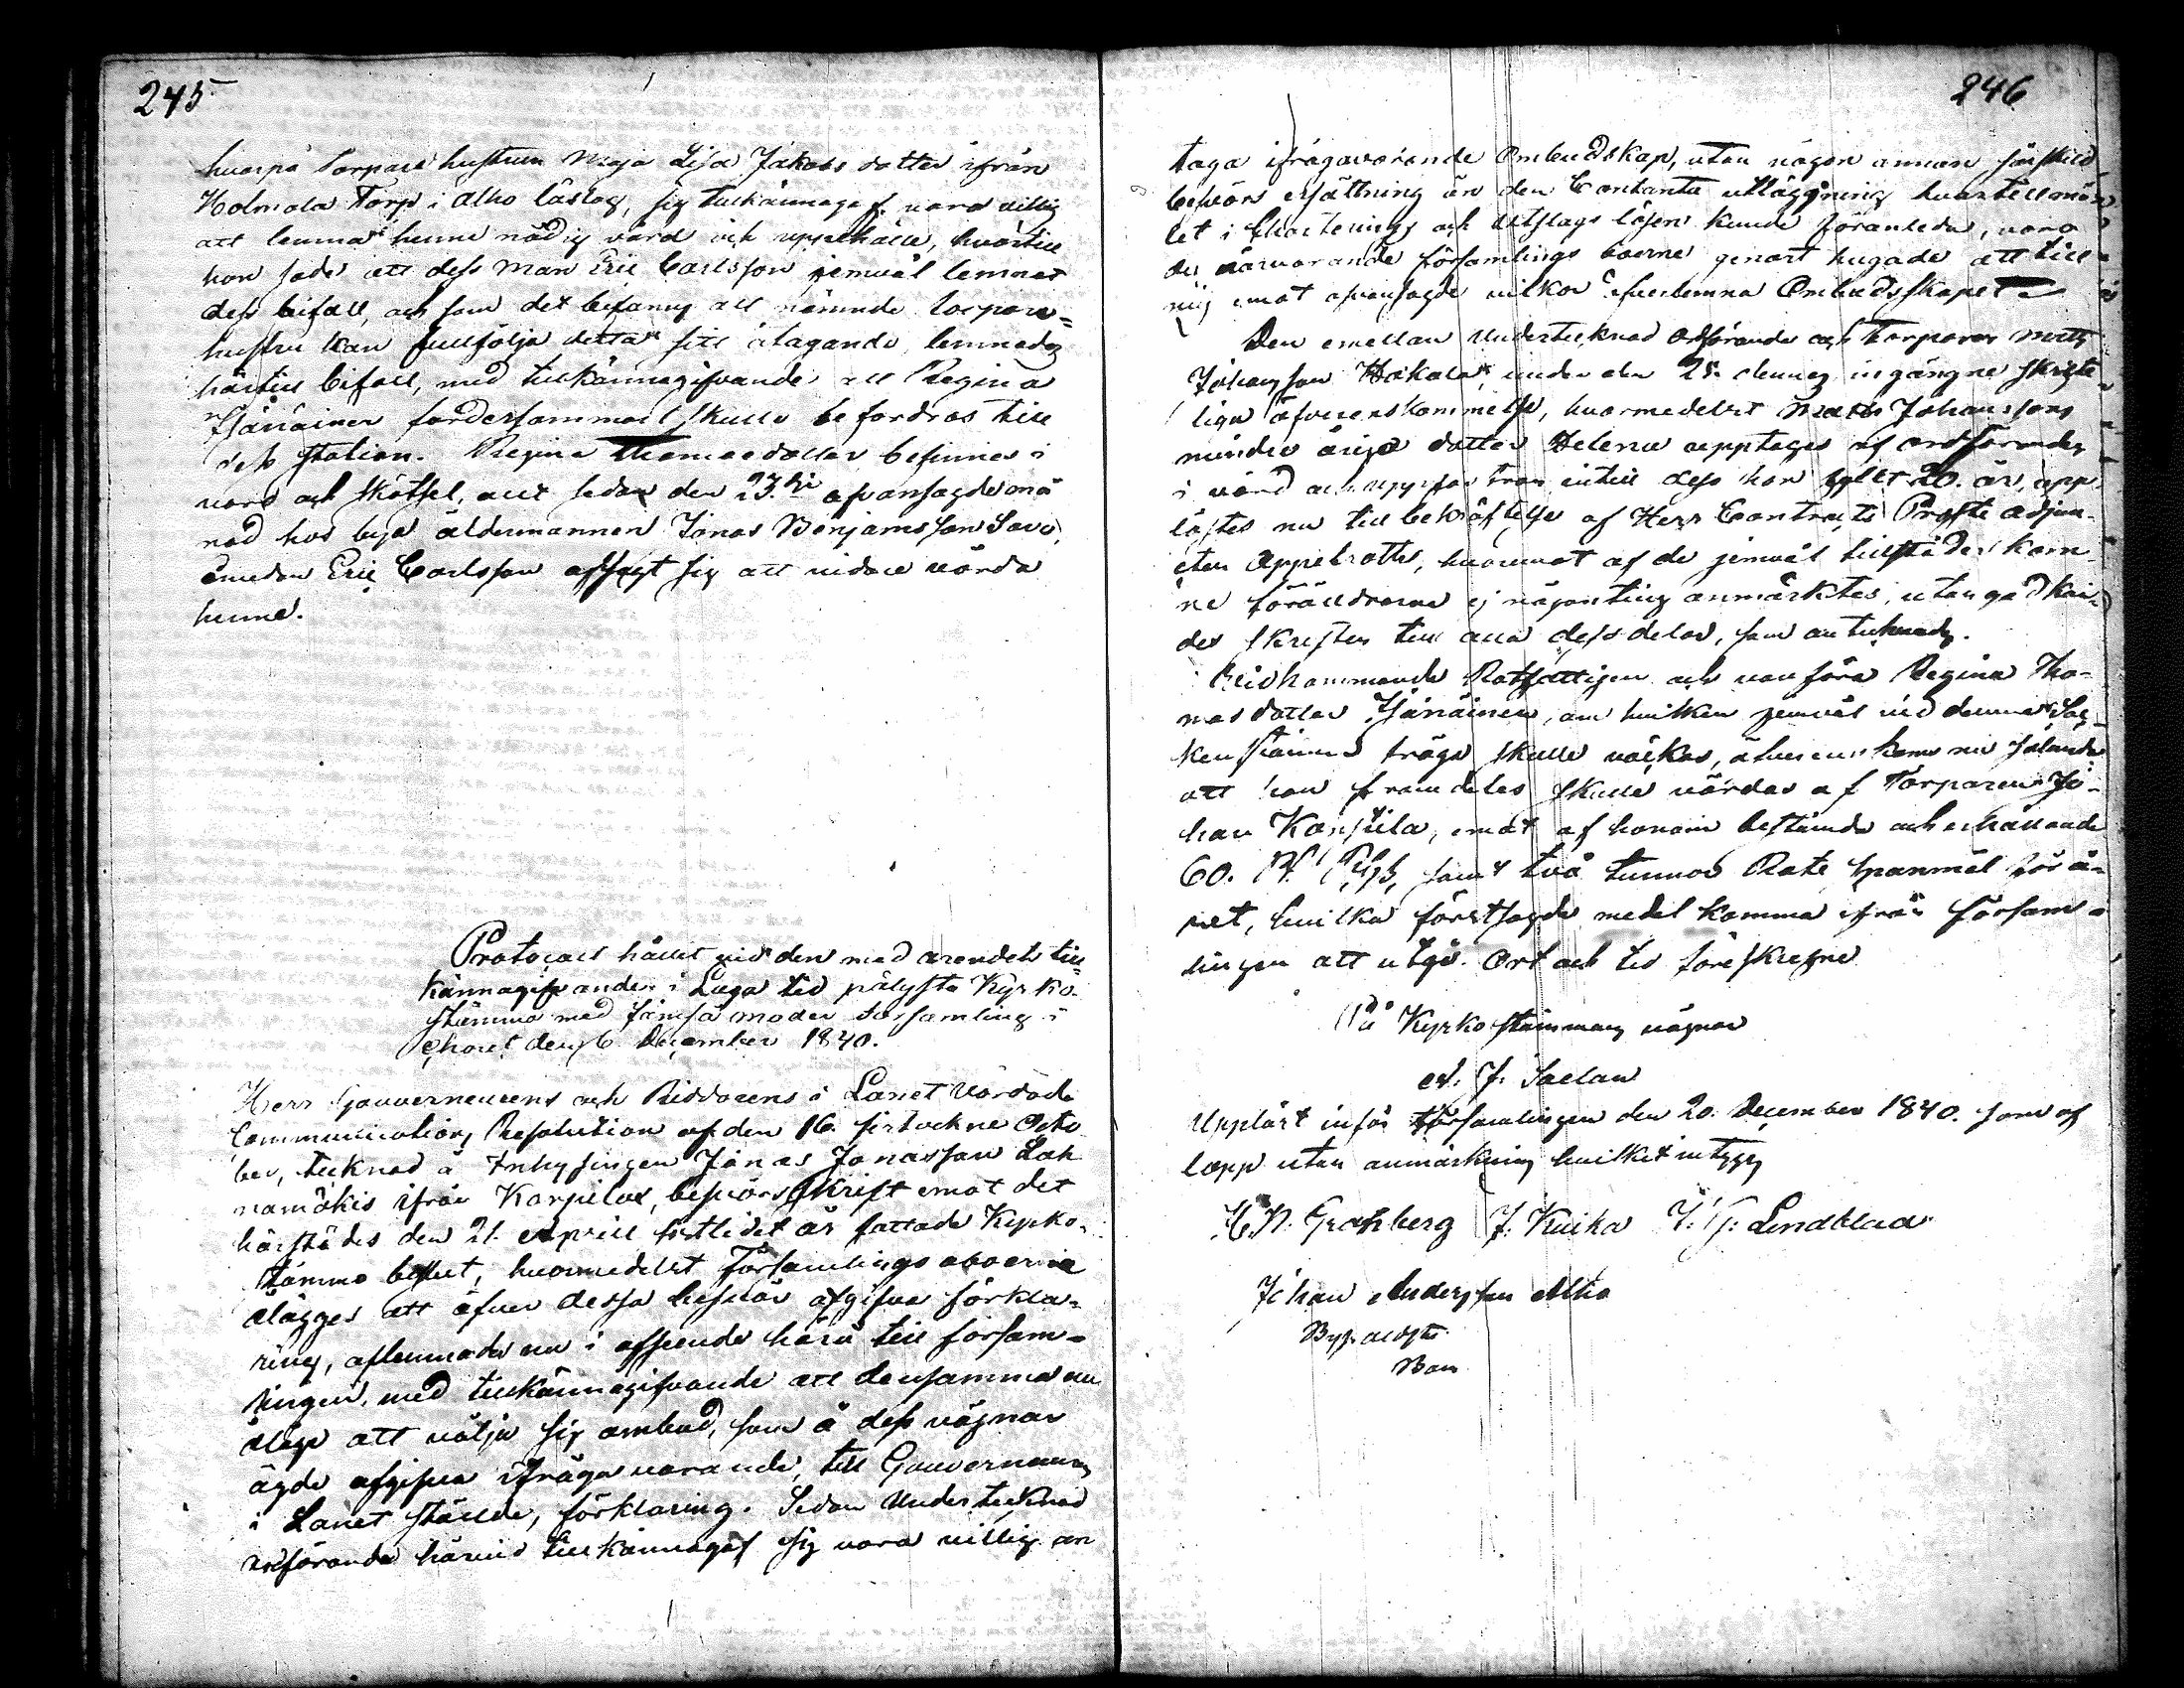 245
hvarpå Torpare hustrun Maja Lisa Jakobs dotter ifrån
Holmola Torp i Alho låstag, sig tillkännagaf vara villig
att lemna henne nödig vård och uppehälle, hvartill
hon sade att dess man Eric Carlsson jemväl lemnat
dess bifall, och som det befanns att nämnde torpare-
hustru kan fullfölja detta sitt åtagande, lemnades
härtill bifall, med tillkännagifvande att Regina
fordersammast skulle befordras till
dess station. Regina Thomasdotter befinnes i
vård och skötsel, allt sedan den 23.de ofvansagde må
nad hos bya åldermannen Jonas Benjamsson Savo,
emedan Eric Carlsson afsagt sig att vidare vårda
henne.
Protocoll hållet vid den med ärendets till-
kännagifvande i Laga tid pålysta Kyrko-
stämma med Jämsä moder församling i
Choret den 6 December 1840.
Herr Gouverneurens och Riddarens i Länet Vördade
Communications Resolution af den 16. sistvekne Octo
ber, tecknad å Inhysingen Jonas Jonasson Lah
namäkis ifrån Karpilax, besvärs skrift emot det
härstädes den 21. April sistlidet år fattade Kyrko-
stämmo beslut, hvarmedelst Församlings aboerne
ålägges att öfver dessa besvär afgifva förkla-
ring, aflemnades nu i afseende härå till försam-
lingen, med tillkännagifvande att densamma nu
ålåge att välja sig ombud, som å dess vägnar
ägde afgifva ifråga varande, till Gouverneuren
i Länet ställde, förklaring. Sedan Undertecknad
ordförande härvid tillkännagaf sig vara villig an
246
taga ifrågavarande Ombudskap, utan någon annan särskild
besvärs ersättning än den Contanta utläggning hvartill mål
let i Chartering och Utslags lösen kunde föranleda, voro
de närvarande församlings boerne genast hugade att till
mig emot ofvansagde vilkor öfverlemna Ombudsskapet
Den emellan Undertecknad Ordförande och Torparen Matts
Johansson Hakala, under den 25. dennes ingångne skrifte
liga öfverenskommelse, hvarmedelst Matts Johanssons
minder åriga dotter Helena upptages af ordföranden
i vård och uppfostran intill dess hon fyllt 20. år, upp
lästes nu till bekräftelse af Herr Contracts Prosten Adjun-
cten Appelroth, hvaremot af de jemväl tillstädes kom
ne föräldrarne ej någonting anmärktes, utan godkän
des skriften till alla dess delar, som antecknades.
Rotfattigen och vanföra Regina Tho-
mas dotter, om hvilken jemväl vid denna Soc
kenstämma fråga skulle väckas, öfverenskoms nu sålunda
att hon framdeles skulle vårdas af Torparen Jo-
han Konsila, emot af honom bestämde och erhållande
60. samt två tunnor Rote spanmål för å-
ret, hvilka förstsagde medel komma ifrån försam-
lingen att utgå. Ort och tid föreskrefne
På Kyrkostämmans vägnar
A. J. Saelan
Uppläst inför församlingen den 20. December 1840. som af
lopp utan anmärkning hvilket intyga
C.N. Grahberg J. Kuika J. G. Lindblad
Johan Andersson Alho
Bys aldste
Ban